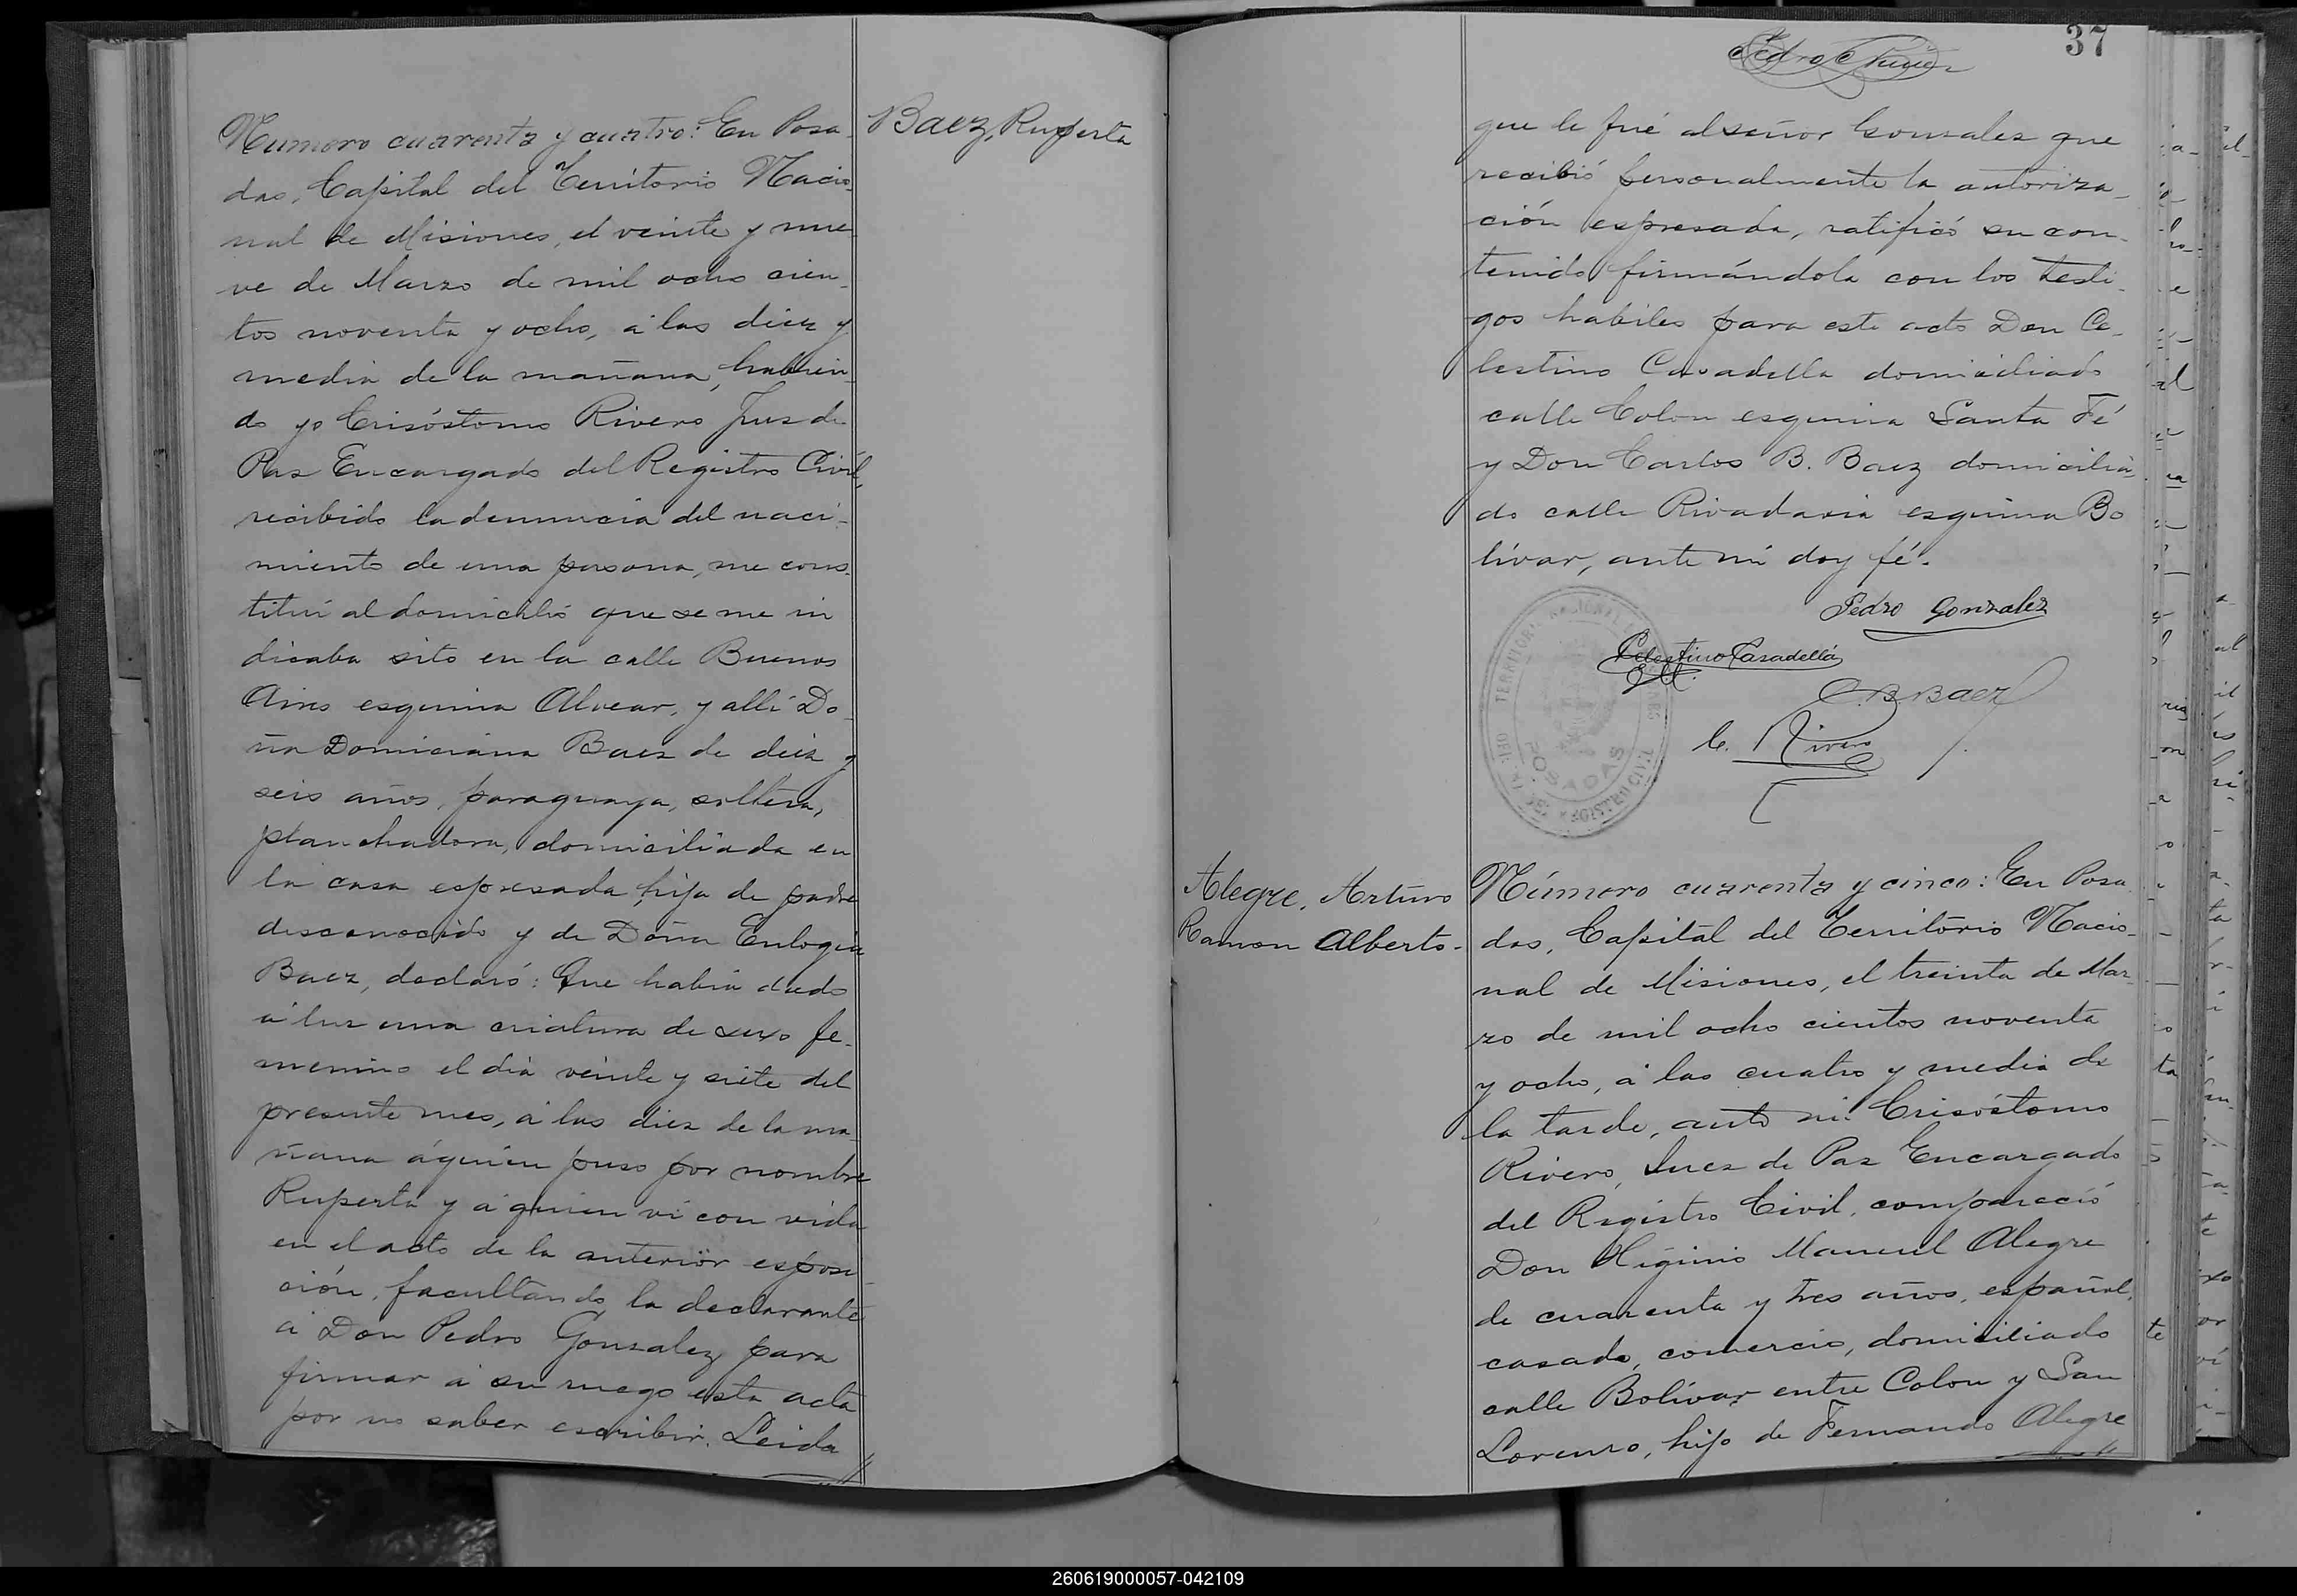 Numero cuarenta y cuatro: En Posa-
das, Capital del Territorio Nacio-
nal de Misiones, el veinte y nue-
ve de Marzo de mil ocho cien-
tos noventa y ocho, á las diez y
media de la mañana, habien-
do yo Crisóstomo Rivero Juez de
Paz Encargado del Registro Civil,
recibido la denuncia del naci-
miento de una persona, me cons-
tituí al domicilió que se me in
dicaba sito en la calle Buenos
Aires esquina Alvear, y allí Do-
ña Domiciana Baez de diez y
seis años, paraguaya, soltera,
planchadora, domiciliada en
la casa espresada, hija de padre
desconocido y de Doña Eulogia
Baez, declaró: Que habia dado
á luz una criatura de sexo fe-
menino el dia veinte y siete del
presente mes, á las diez de la ma-
ñana áquien puso por nombre
Ruperta y á quien vi con vida
en el acto de la anterior esposi-
ción, facultando la declarante
á Don Pedro Gonzalez para
firmar á su ruego esta acta
por no saber escribir. Leida
Baez, Ruperta
37
Pedro
que le fué al señor Gonzalez que
recibió personalmente la autoriza-
ción espresada, ratificó su con-
tenido firmándola con los testi-
gos habiles para este acto Don Ce-
lestino Casadella domiciliado
calle Colon esquina Santa Fé
y Don Carlos B. Baez domicilia-
do calle Rivadavia esquina Bo
lívar, ante mí doy fé.
Pedro Gonzalez
Celestino Casadellá
C. B. Baez
C. Rivero
TERRITORIO NACIONAL
REGISTRO CIVIL
POSADAS
Alegre, Arturo
Ramon Alberto.
Número cuarenta y cinco: En Posa
das, Capital del Territorio Nacio-
nal de Misiones, el treinta de Mar-
zo de mil ocho cientos noventa
y ocho, á las cuatro y media de
la tarde, ante mi Crisóstomo
Rivero, Juez de Paz Encargado
del Registro Civil, compareció
Don Higinio Manuel Alegre
de cuarenta y tres años, español,
casado, comercio, domiciliado
calle Bolívar entre Colon y San
Lorenzo, hijo de Fernando Alegre
260619000057-042109